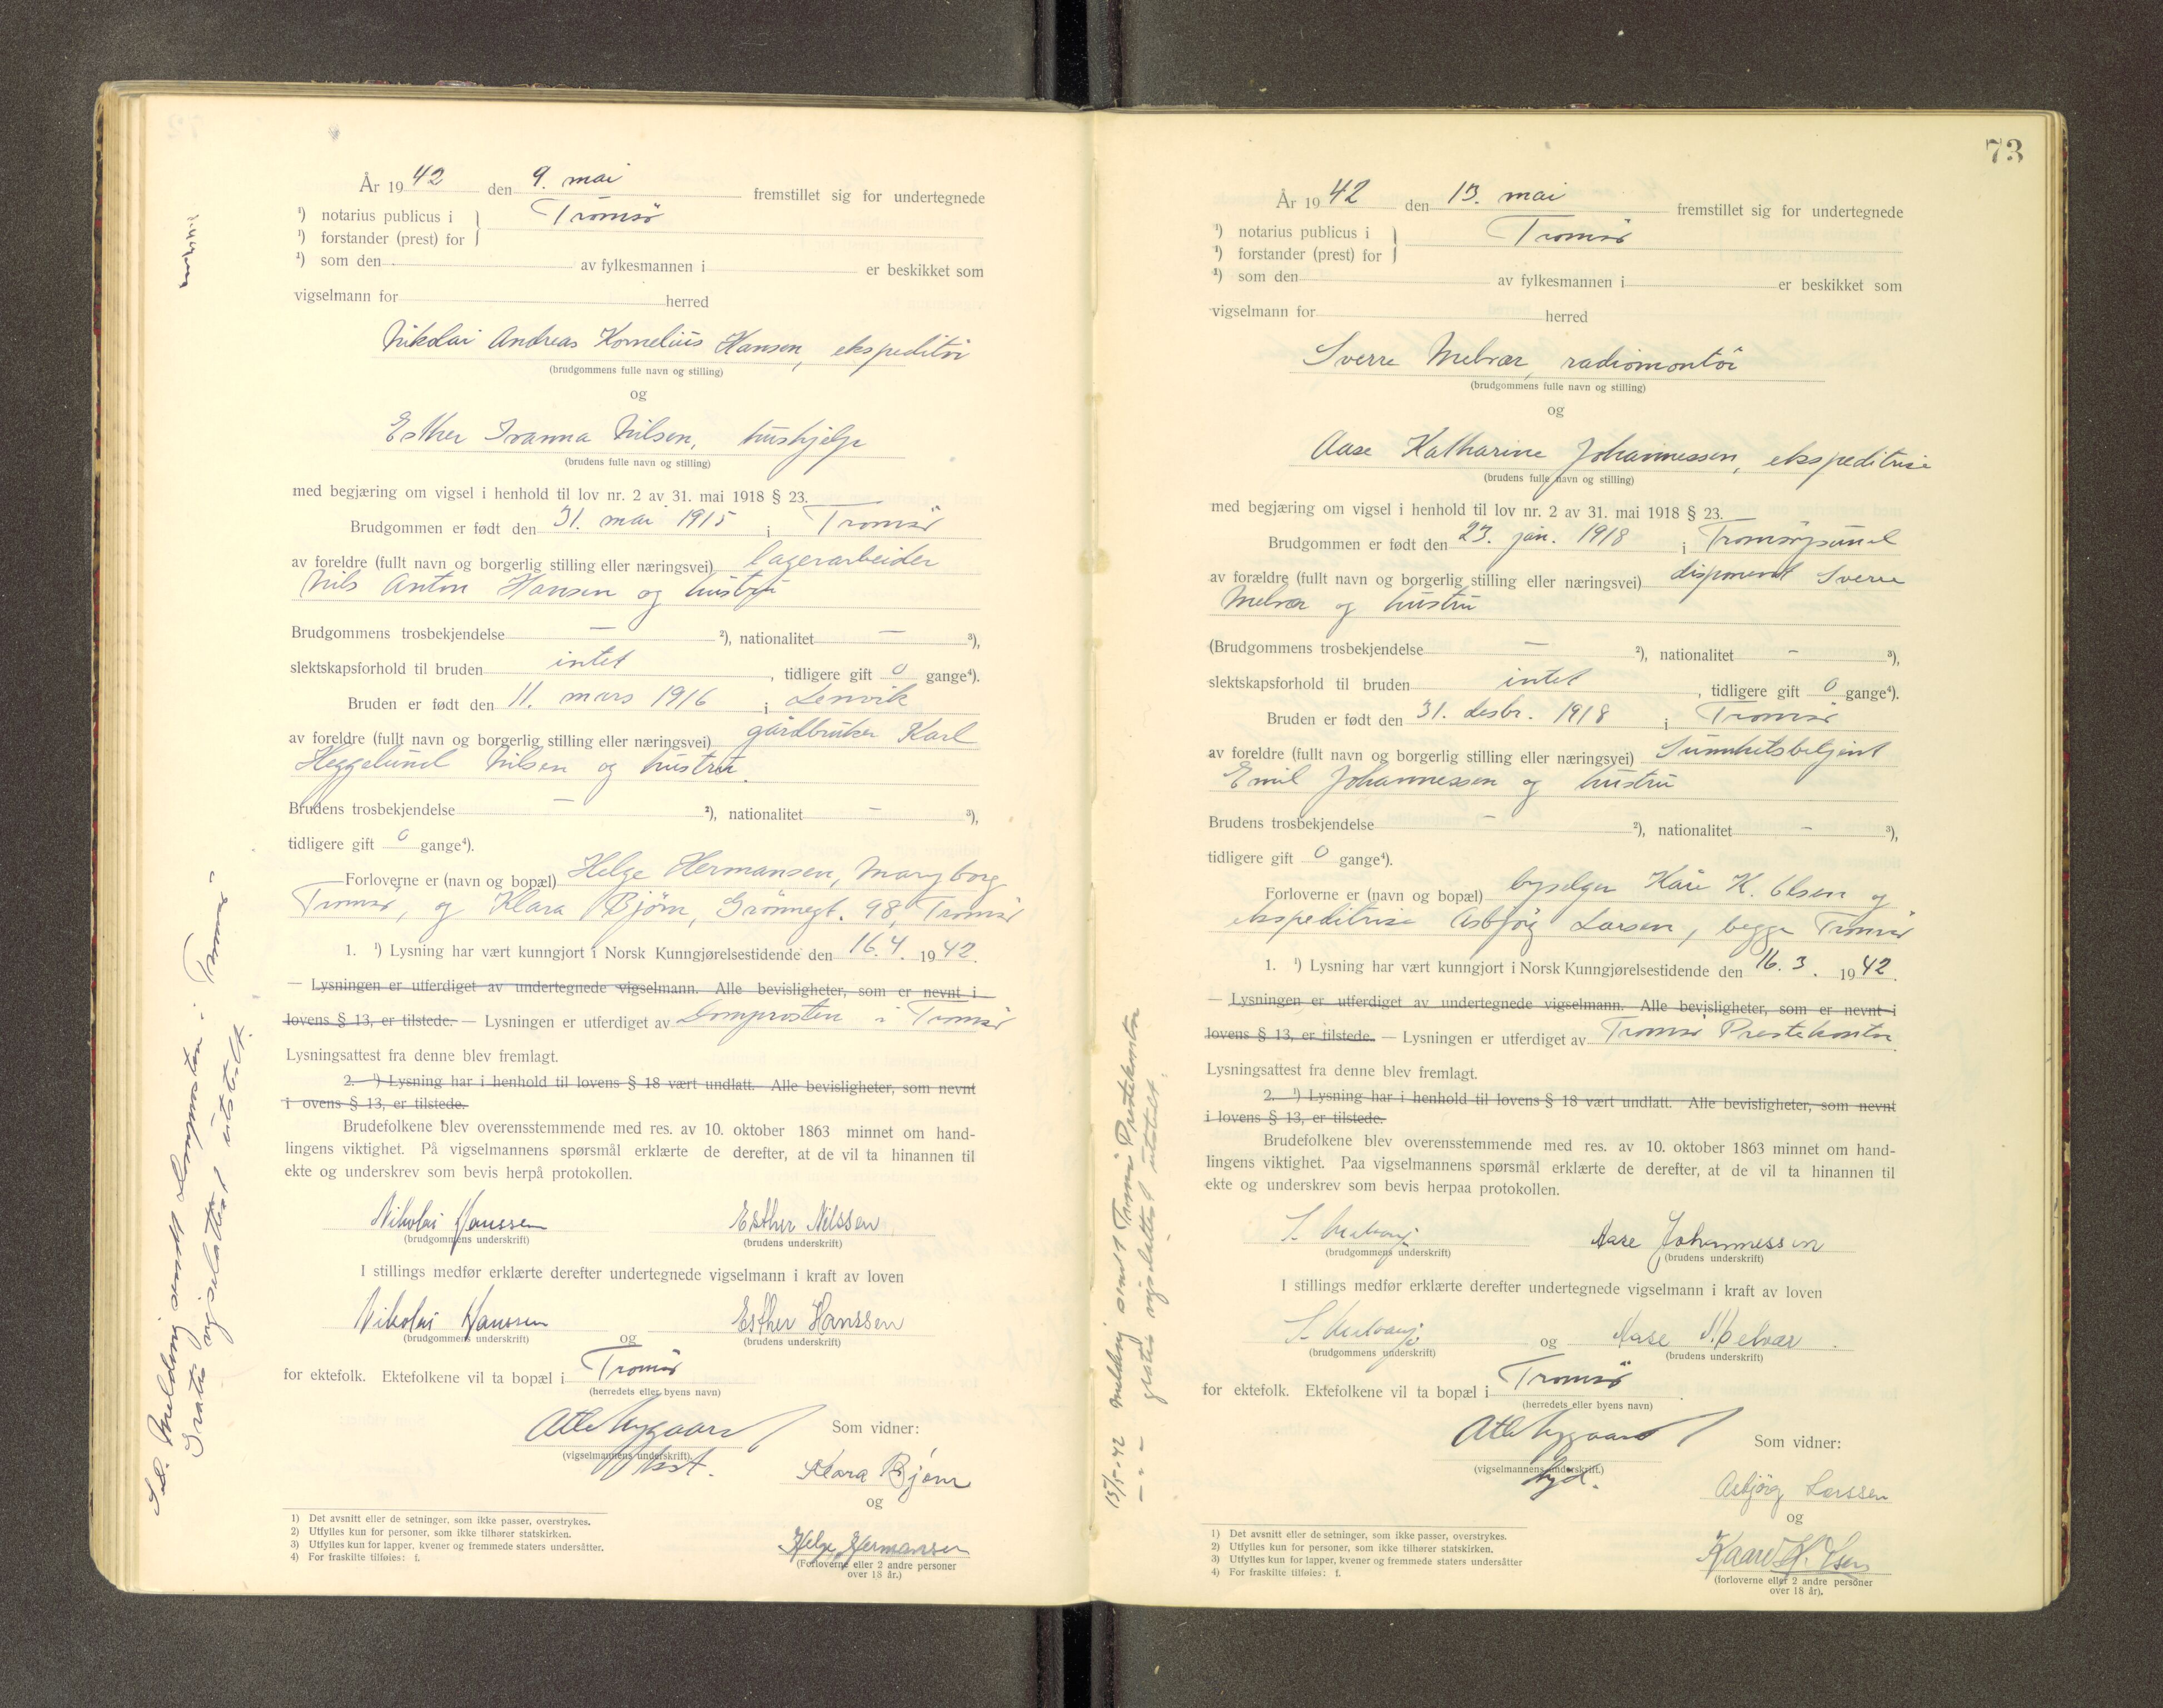 År 1942 den 9. mai fremstillet sig for undertegnede
¹) notarius publicus i } Tromsö
¹) forstander (prest) for
¹) som den av fylkesmannen i er beskikket som
vigselmann for herred
Nikolai Andreas Kornelius Hansen, ekspeditör
(brudgommens fulle navn og stilling)
og
Esther Ivanna Nilsen, hushjelp
(brudens fulle navn og stilling)
med begjæring om vigsel i henhold til lov nr. 2 av 31. mai 1918 § 23.
Brudgommen er født den 31. mai 1915 i Tromsö
av foreldre (fullt navn og borgerlig stilling eller næringsvei) lagerarbeider
Nils Anton Hansen og hustru
Brudgommens trosbekjendelse — ²), nationalitet — ³),
slektskapsforhold til bruden intet, tidligere gift 0 gange⁴).
Bruden er født den 11. mars 1916 i Lenvik
av foreldre (fullt navn og borgerlig stilling eller næringsvei) gårdbruker Karl
Heggelund Nilsen og hustru.
Brudens trosbekjendelse — ²), nationalitet — ³),
tidligere gift 0 gange⁴).
Forloverne er (navn og bopæl) Helge Hermansen, Maryborg
Tromsö, og Klara Bjørn, Grönnegt. 98, Tromsö
1. ¹) Lysning har vært kunngjort i Norsk Kunngjørelsestidende den 16.4. 1942.
— Lysningen er utferdiget av undertegnede vigselmann. Alle bevisligheter, som er nevnt i
lovens § 13, er tilstede. — Lysningen er utferdiget av Domprosten i Tromsö
Lysningsattest fra denne blev fremlagt.
2. ¹) Lysning har i henhold til lovens § 18 vært undlatt. Alle bevisligheter, som nevnt
i ovens § 13, er tilstede.
Brudefolkene blev overensstemmende med res. av 10. oktober 1863 minnet om hand-
lingens viktighet. På vigselmannens spørsmål erklærte de derefter, at de vil ta hinannen til
ekte og underskrev som bevis herpå protokollen.
Nikolai Hanssen Esther Nilssen
(brudgommens underskrift) (brudens underskrift)
I stillings medfør erklærte derefter undertegnede vigselmann i kraft av loven
Nikolai Hanssen og Esther Hanssen
(brudgommens underskrift) (brudens underskrift)
for ektefolk. Ektefolkene vil ta bopæl i Tromsö
(herredets eller byens navn)
Atle Nygaard Som vidner:
(vigselmannens underskrift).
Klara Bjørn
og
Helge Hermansen
(Forloverne eller 2 andre personer
over 18 år.)
1) Det avsnitt eller de setninger, som ikke passer, overstrykes.
2) Utfylles kun for personer, som ikke tilhører statskirken.
3) Utfylles kun for lapper, kvener og fremmede staters undersåtter.
4) For fraskilte tilføies: f.
S.d. Melding sendt Domprosten i Tromsö
Gratis vigselattest utstedt
73
År 1942 den 13. mai fremstillet sig for undertegnede
¹) notarius publicus i } Tromsö
¹) forstander (prest) for
¹) som den av fylkesmannen i er beskikket som
vigselmann for herred
Sverre Melvær, radiomontör
(brudgommens fulle navn og stilling)
og
Aase Katharine Johannessen, ekspeditrise
(brudens fulle navn og stilling)
med begjæring om vigsel i henhold til lov nr. 2 av 31. mai 1918 § 23.
Brudgommen er født den 23. jan. 1918 i Tromsöysund
av forældre (fullt navn og borgerlig stilling eller næringsvei) disponent Sverre
Melvær og hustru
(Brudgommens trosbekjendelse — ²), nationalitet — ³),
slektskapsforhold til bruden intet, tidligere gift 0 gange⁴).
Bruden er født den 31. desbr. 1918 i Tromsö
av foreldre (fullt navn og borgerlig stilling eller næringsvei) Sunnhetsbetjent
Emil Johannessen og hustru
Brudens trosbekjendelse — ²), nationalitet — ³),
tidligere gift 0 gange⁴).
Forloverne er (navn og bopæl) byselger Kåre K. Olsen og
ekspeditrise Asbjörg Larsen, begge Tromsö
1. ¹) Lysning har vært kunngjort i Norsk Kunngjørelsestidende den 16.3. 1942.
— Lysningen er utferdiget av undertegnede vigselmann. Alle bevisligheter, som er nevnt i
lovens § 13, er tilstede. — Lysningen er utferdiget av Tromsö Prestekontor
Lysningsattest fra denne blev fremlagt.
2. ¹) Lysning har i henhold til lovens § 18 vært undlatt. Alle bevisligheter, som nevnt
i lovens § 13, er tilstede.
Brudefolkene blev overensstemmende med res. av 10. oktober 1863 minnet om hand-
lingens viktighet. Paa vigselmannens spørsmål erklærte de derefter, at de vil ta hinannen til
ekte og underskrev som bevis herpaa protokollen.
S. Melvær Aase Johannessen
(brudgommens underskrift) (brudens underskrift)
I stillings medfør erklærte derefter undertegnede vigselmann i kraft av loven
S. Melvær og Aase Melvær.
(brudgommens underskrift) (brudens underskrift)
for ektefolk. Ektefolkene vil ta bopæl i Tromsö
(herredets eller byens navn)
Atle Nygaard Som vidner:
(vigselmannens underskrift.)
Asbjörg Larssen
og
Kaare K. Olsen
(forloverne eller 2 andre personer
over 18 år).
1) Det avsnitt eller de setninger, som ikke passer, overstrykes.
2) Utfylles kun for personer, som ikke tilhører statskirken.
3) Utfylles kun for lapper, kvener og fremmede staters undersåtter
4) For fraskilte tilføies: f.
15/5-42 Melding sendt Tromsö Prestekontor
— " — gratis vigselattest utstedt.